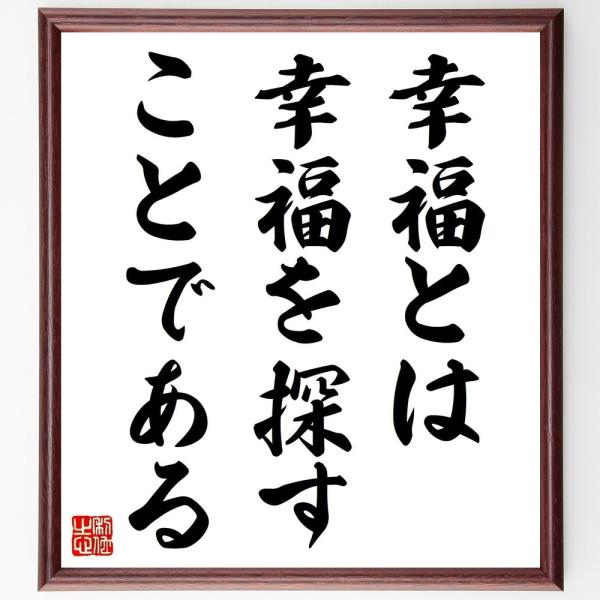 幸福とは
幸福を探す
ことである